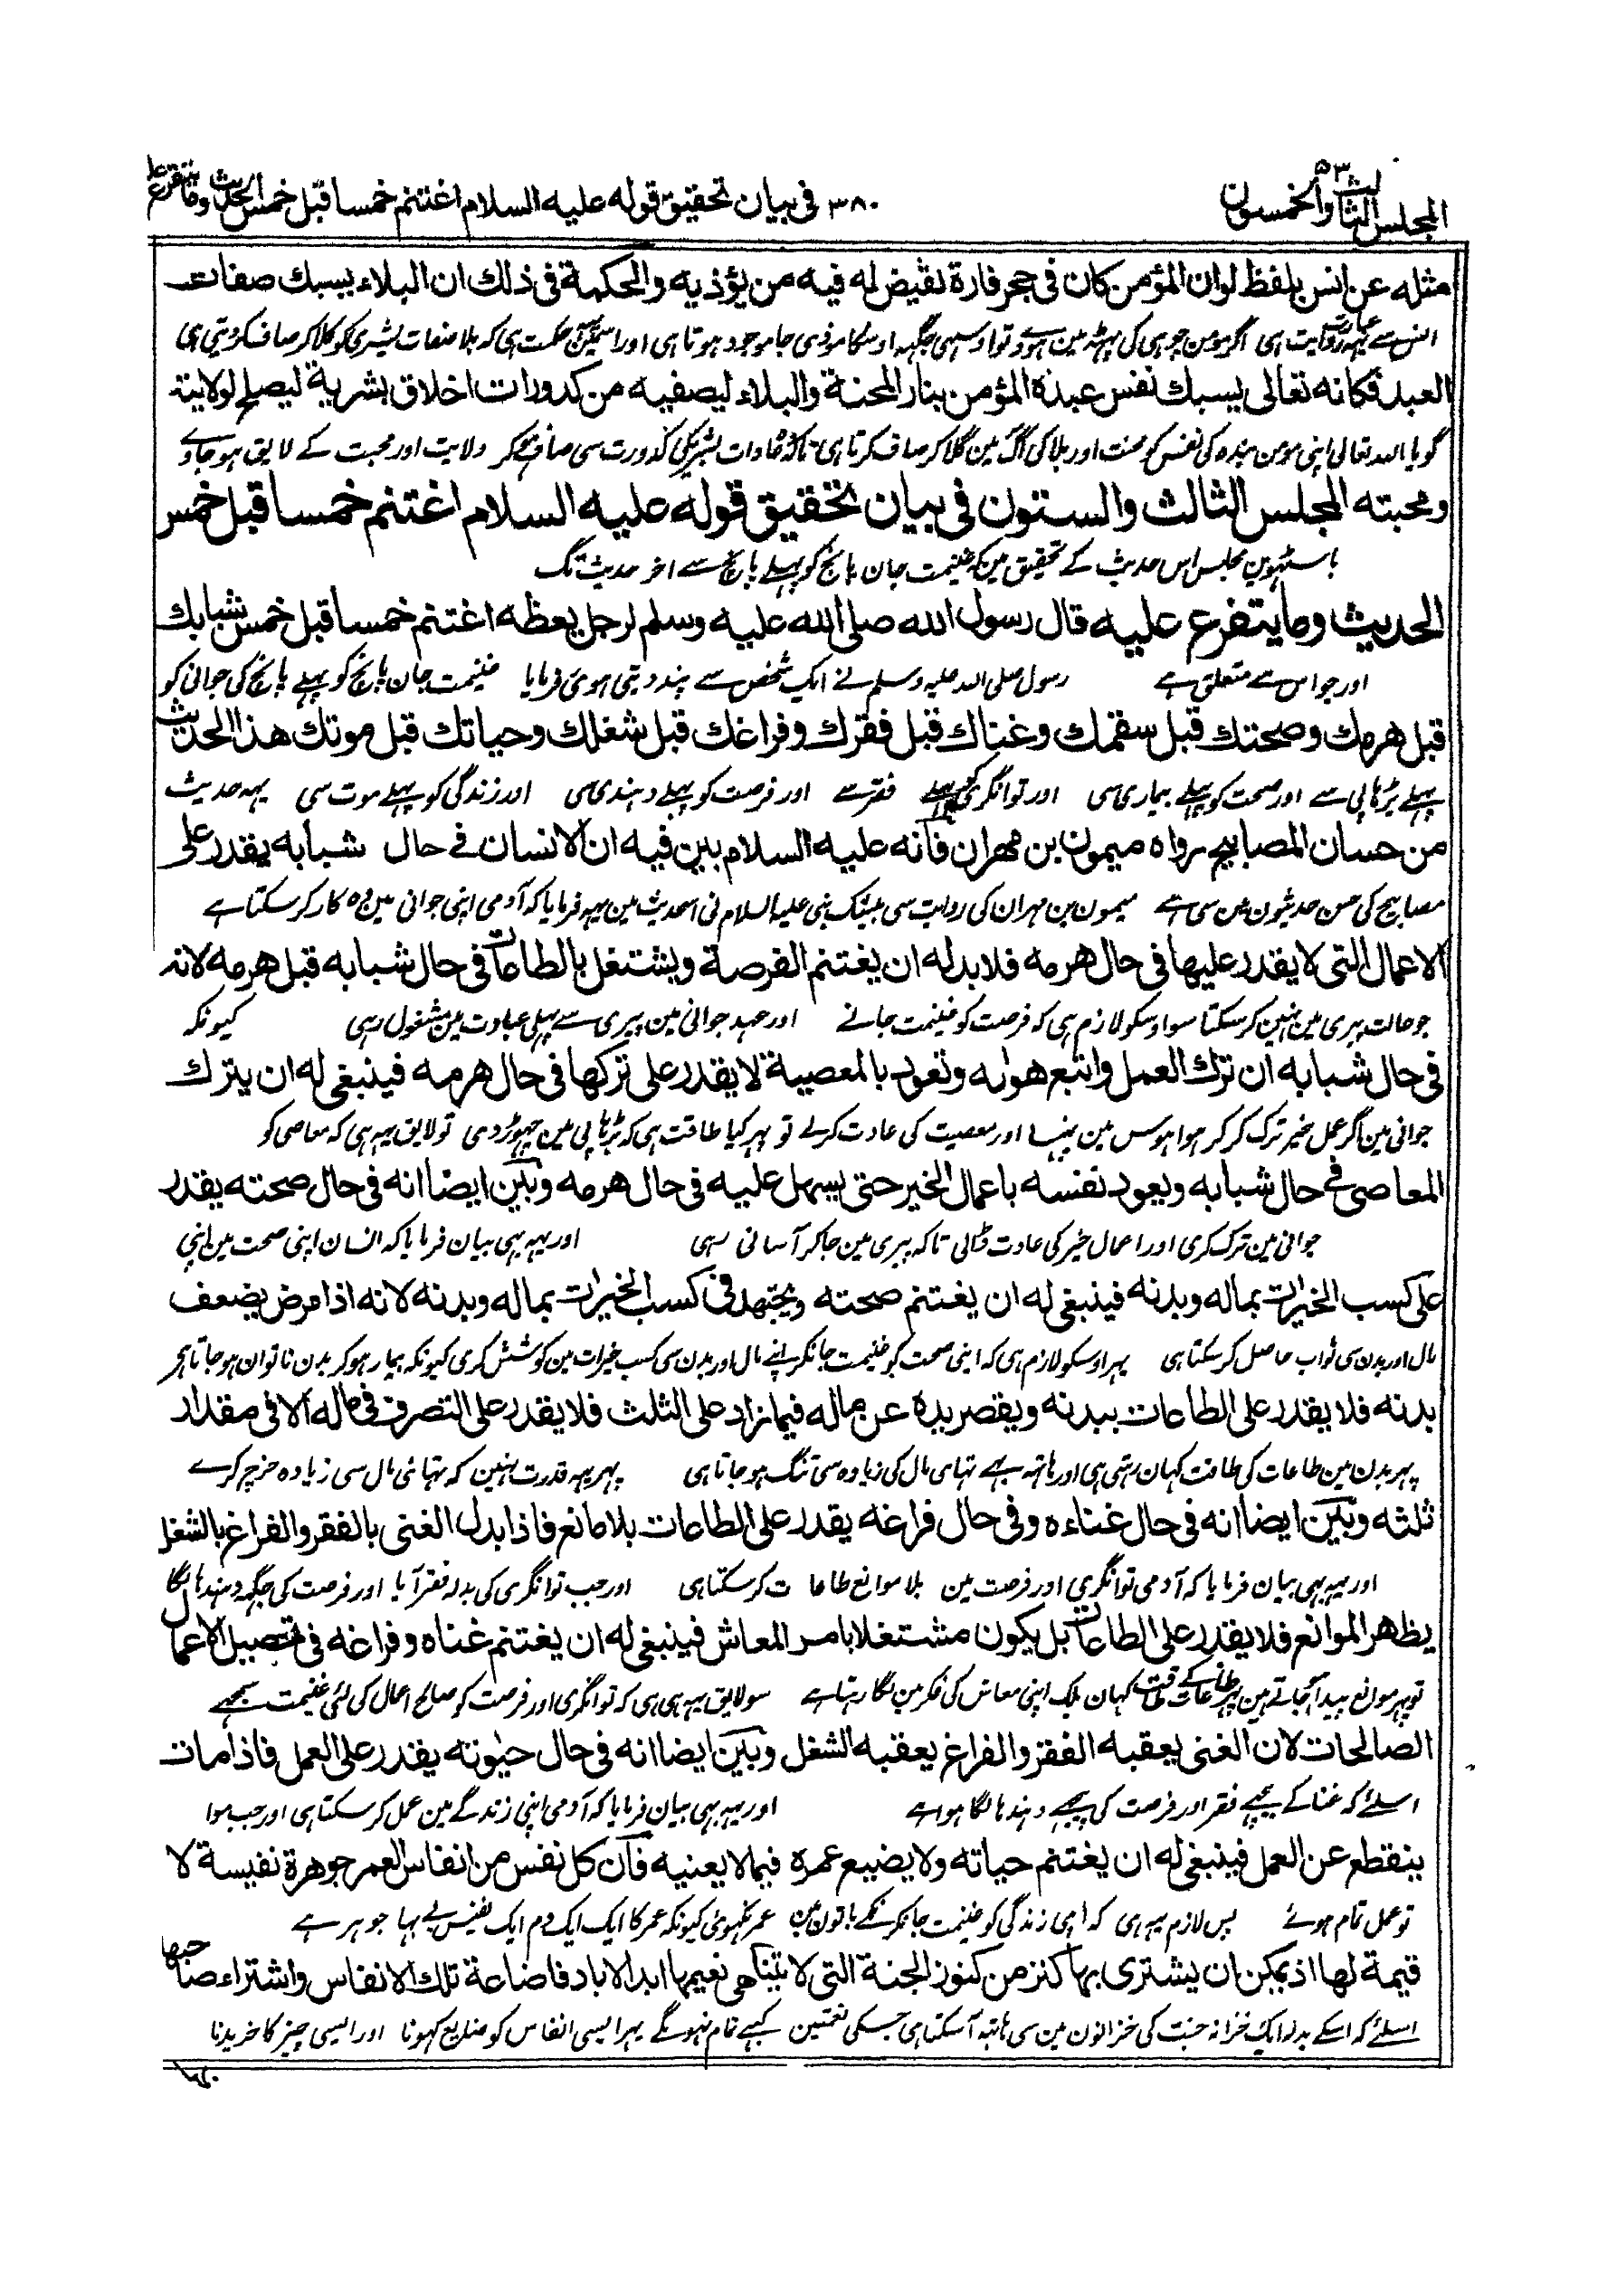 المجلس الثالث والخمسون ٥٣ ٣٨٠ فى بيان تحقيق قوله عليه السلام اغتنم خمسا قبل خمس الحديث وما يتفرع عليه
مثله عن انس بلفظ لو ان المؤمن كان فى جحر فارة لقيض له فيه من يؤذيه والحكمة فى ذلك ان البلاء يسبك صفات
انس سے یہہ روایت ہی اگر مومن چوہی کی بہٹہ مین ہووے تو اوسہی جگہہ اوسکا موذی جا موجود ہوتا ہی اور اسمین حکمت ہی کہ بلا صفات بشری کو گلا کر صاف کر دیتی ہی
العبد فكانه تعالى يسبك نفس عبده المؤمن بنار المحنة والبلاء ليصفيه من كدورات اخلاق بشرية ليصلح لولايته
گویا اللہ تعالی اپنی مومن بندہ کی نفس کو محنت اور بلا کی آگ مین گلا کر صاف کرتا ہی تاکہ عادات بشری کی کدورت سی صاف ہو کر ولایت اور محبت کے لایق ہو جاوے
ومحبته المجلس الثالث والستون فى بيان تحقيق قوله عليه السلام اغتنم خمسا قبل خمس
باسٹہوین مجلس اس حدیث کے تحقیق مین کہ غنیمت جان پانچ کو پہلے پانچ سے اخر حدیث تک
الحديث وما يتفرع عليه قال رسول الله صلى الله عليه وسلم لرجل يعظه اغتنم خمسا قبل خمس شبابك
اور جو اس سے متعلق ہے رسول صلی اللہ علیہ وسلم نے ایک شخص سے پند دیتی ہوی فرمایا غنیمت جان پانچ کو پہلے پانچ کی جوانی کو
قبل هرمك وصحتك قبل سقمك وغناك قبل فقرك وفراغك قبل شغلك وحياتك قبل موتك هذا الحديث
پہلے بڑہاپی سے اور صحت کو پہلے بیماری سی اور توانگری کو پہلے فقر سے اور فرصت کو پہلے دہندی سی اور زندگی کو پہلے موت سی یہہ حدیث
من حسان المصابيح رواه ميمون بن مهران فانه عليه السلام بين فيه ان الانسان فى حال شبابه يقدر على
مصابیح کی حسن حدیثون مین سی ہے میمون بن مہران کی روایت سی بیشک نبی علیہ السلام نی اس حدیث مین یہہ فرمایا کہ آدمی اپنی جوانی مین وہ کار کر سکتا ہے
الاعمال التى لا يقدر عليها فى حال هرمه فلا بد له ان يغتنم الفرصة ويشتغل بالطاعات فى حال شبابه قبل هرمه لانه
جو حالت پیری مین نہین کر سکتا سو اوسکو لازم ہی کہ فرصت کو غنیمت جانے اور عہد جوانی مین پیری سے پہلی عبادت مین مشغول رہی کیونکہ
فى حال شبابه ان ترك العمل واتبع هواه وتعود بالمعصية لا يقدر على تركها فى حال هرمه فينبغى له ان يترك
جوانی مین اگر عمل خیر ترک کر کر ہوا ہوس مین پہنسا اور معصیت کی عادت کرلے تو پہر کیا طاقت ہی کہ بڑہاپی مین چہوڑ دی تو لایق یہہ ہی کہ معاصی کو
المعاصى فى حال شبابه ويعود نفسه باعمال الخير حتى يسهل عليه فى حال هرمه وبين ايضا انه فى حال صحته يقدر
جوانی مین ترک کری اور اعمال خیر کی عادت ڈالی تاکہ پیری مین جا کر آسانی رہی اور یہہ بہی بیان فرمایا کہ انسان اپنی صحت مین اپنی
على كسب الخيرات بماله وبدنه فينبغى له ان يغتنم صحته ويجتهد فى كسب الخيرات بماله وبدنه لانه اذا مرض يضعف
مال اور بدن سی ثواب حاصل کر سکتا ہی پہر اوسکو لازم ہی کہ اپنی صحت کو غنیمت جانکر اپنے مال اور بدن سی کسب خیرات مین کوشش کری کیونکہ بیمار ہو کر بدن ناتوان ہو جاتا ہی
بدنه فلا يقدر على الطاعات ببدنه ويقصر يده عن ماله فيما زاد على الثلث فلا يقدر على التصرف فى ماله الا فى مقدار
پہر بدن مین طاعات کی طاقت کہان رہتی ہی اور ہاتہہ تہائی مال کی زیادہ سی تنگ ہو جاتا ہی پہر یہہ قدرت نہین کہ تہائی مال سی زیادہ خرچ کرے
ثلثه وبين ايضا انه فى حال غناءه وفى حال فراغه يقدر على الطاعات بلا مانع فاذا بدل الغنى بالفقر والفراغ بالشغل
اور یہہ بہی بیان فرمایا کہ آدمی توانگری اور فرصت مین بلا موانع طاعات کر سکتا ہی اور جب توانگری کی بدلہ فقر آیا اور فرصت کی جگہہ دہندہا لگا
يظهر الموانع فلا يقدر على الطاعات بل يكون مشتغلا بامر المعاش فينبغى له ان يغتنم غناه وفراغه فى تحصيل الاعمال
تو پہر موانع پیدا ہو جاتے ہین پہر طاعات کے طاقت کہان بلکہ اپنی معاش کی فکر مین لگا رہتا ہے سو لایق یہہ ہی ہی کہ توانگری اور فرصت کو صالح اعمال کی لئی غنیمت سمجہے
الصالحات لان الغنى يعقبه الفقر والفراغ يعقبه الشغل وبين ايضا انه فى حال حيوته يقدر على العمل فاذا مات
اسلئے کہ غنا کے پیچہے فقر اور فرصت کی پیچہے دہندہا لگا ہوا ہے اور یہہ بہی بیان فرمایا کہ آدمی اپنی زندگے مین عمل کر سکتا ہی اور جب موا
ينقطع عن العمل فينبغى له ان يغتنم حياته ولا يضيع عمره فيما لا يعنيه فان كل نفس من انفاس العمر جوهرة نفيسة لا
تو عمل تمام ہوئے پس لازم یہہ ہی کہ اپنی زندگی کو غنیمت جانکر نکمے باتون مین عمر نکہوئی کیونکہ عمر کا ایک ایک دم ایک نفیس بے بہا جوہر ہے
قيمة لها اذ يمكن ان يشترى بها كنز من كنوز الجنة التى لا يتناهى نعيمها ابد الاباد فاضاعة تلك الانفاس واشتراء صاحبها
اسلئے کہ اسکے بدلہ ایک خزانہ جنت کی خزانون مین سی ہاتہہ آ سکتا ہی جسکی نعمتین کبہے تمام نہونگے پہر ایسی انفاس کو ضایع کہونا اور ایسی چیز کا خریدنا